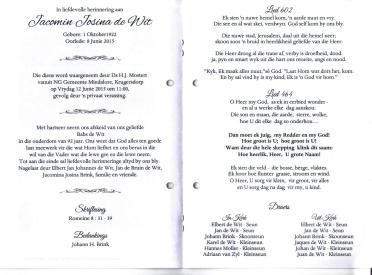 In liefdevolle herinnering aan
Jacomin Josina de Wit
Gebore: 1 Oktober 1922
Oorlede: 8 Junie 2015
Die diens word waargeneem deur Ds H.J. Mostert
vanuit NG Gemeente Mindalore, Krugersdorp
op Vrydag 12 Junie 2015 om 11:00,
gevolg deur 'n privaat verassing.
Met hartseer neem ons afskeid van ons geliefde
Babs de Wit
in die ouderdom van 92 jaar. Ons weet dat God alles ten goede
laat meewerk vir die wat Hom liefhet en ons berus in die
wil van die Vader wat die lewe gee en die lewe neem.
Tot aan die einde sal liefdevolle herinneringe altyd by ons bly.
Nagelaat deur Elbert Jan Johannes de Wit, Jan de Bruin de Wit,
Jacomina Josina Brink, familie en vriende.
Skriflesing
Romeine 8 : 31 - 39
Bedankings
Johann H. Brink
Lied 602
Ek sien 'n nuwe hemel kom, 'n aarde nuut en vry.
Die see en al wat skei, verdwyn, God self kom by ons bly.
Die nuwe stad, Jerusalem, daal uit die hemel neer;
skoon soos 'n bruid in heerlikheid geliefde van die Heer:
Die Heer droog al die trane af, verby is droefheid, dood.
Ja, pyn en smart wyk uit die hart ons muurte, angs en nood.
"Kyk, Ek maak alles nuut," sê God. "Laat Hom wat dors het, kom.
En hy sal vind hy is my kind. Ek is 'n God vir hom."
Lied 464
O Heer my God, as ek in eerbied wonder
en al u werke elke dag aanskou:
Die son en maan, die aarde, sterre, wolke,
hoe U dit elke dag so onderhou...
Dan moet ek juig, my Redder en my God!
Hoe groot is U; hoe groot is U!
Want deur die hele skepping klink dit saam:
Hoe heerlik, Heer, U grote Naam!
Ek sien die veld - die bosse, berge, vlaktes.
Ek hoor hoe fluister grasse, stroom en wind.
O Heer, U sorg vir klein, vir groot, vir alles
en U sorg dag na dag vir my, u kind.
Draers
In Kerk
Elbert de Wit - Seun
Jan de Wit - Seun
Johann Brink - Skoonseun
Karel de Wit - Kleinseun
Hannes Moller - Kleinseun
Adriaan van Zyl - Kleinseun
Uit Kerk
Elbert de Wit - Seun
Jan de Wit - Seun
Johann Brink - Kleinseun
Jaques de Wit - Kleinseun
Johan de Wit - Kleinseun
Juan de Wit - Kleinseun